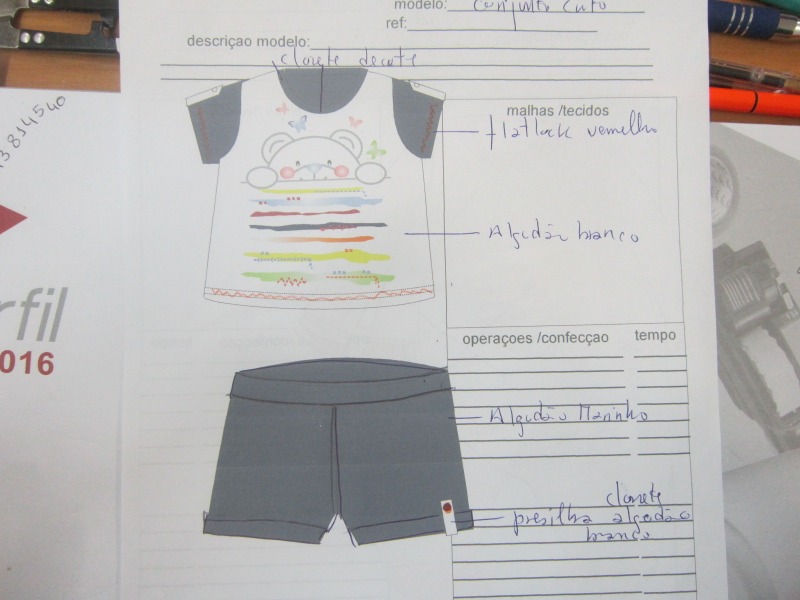 modelo: conjunto curto
ref:
descriçao modelo:
clorete decote
malhas /tecidos
flatlock vermelho
Algodão branco
operaçoes /confecçao tempo
Algodão Marinho
clorete
presilha algodão
branco
13 894540
rfil
016